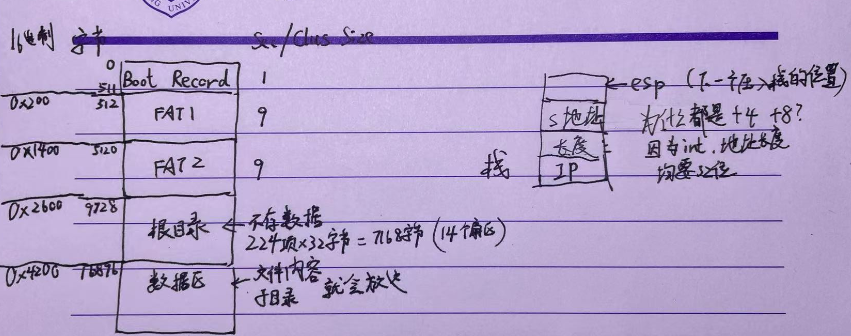 NG UNIV
16进制 字节 Sec/Clus Size
0
Boot Record 1
511
0x200 512
FAT1 9
0x1400 5120
FAT2 9
0x2600 9728
根目录 ← 不存数据
224项×32字节=7168字节(14个扇区)
0x4200 16896
数据区 ← 文件内容
子目录 就会放这
←esp (下一个压入栈的位置)
S地址 为什么都是+4 +8?
长度 因为int、地址长度
栈 IP 均要32位